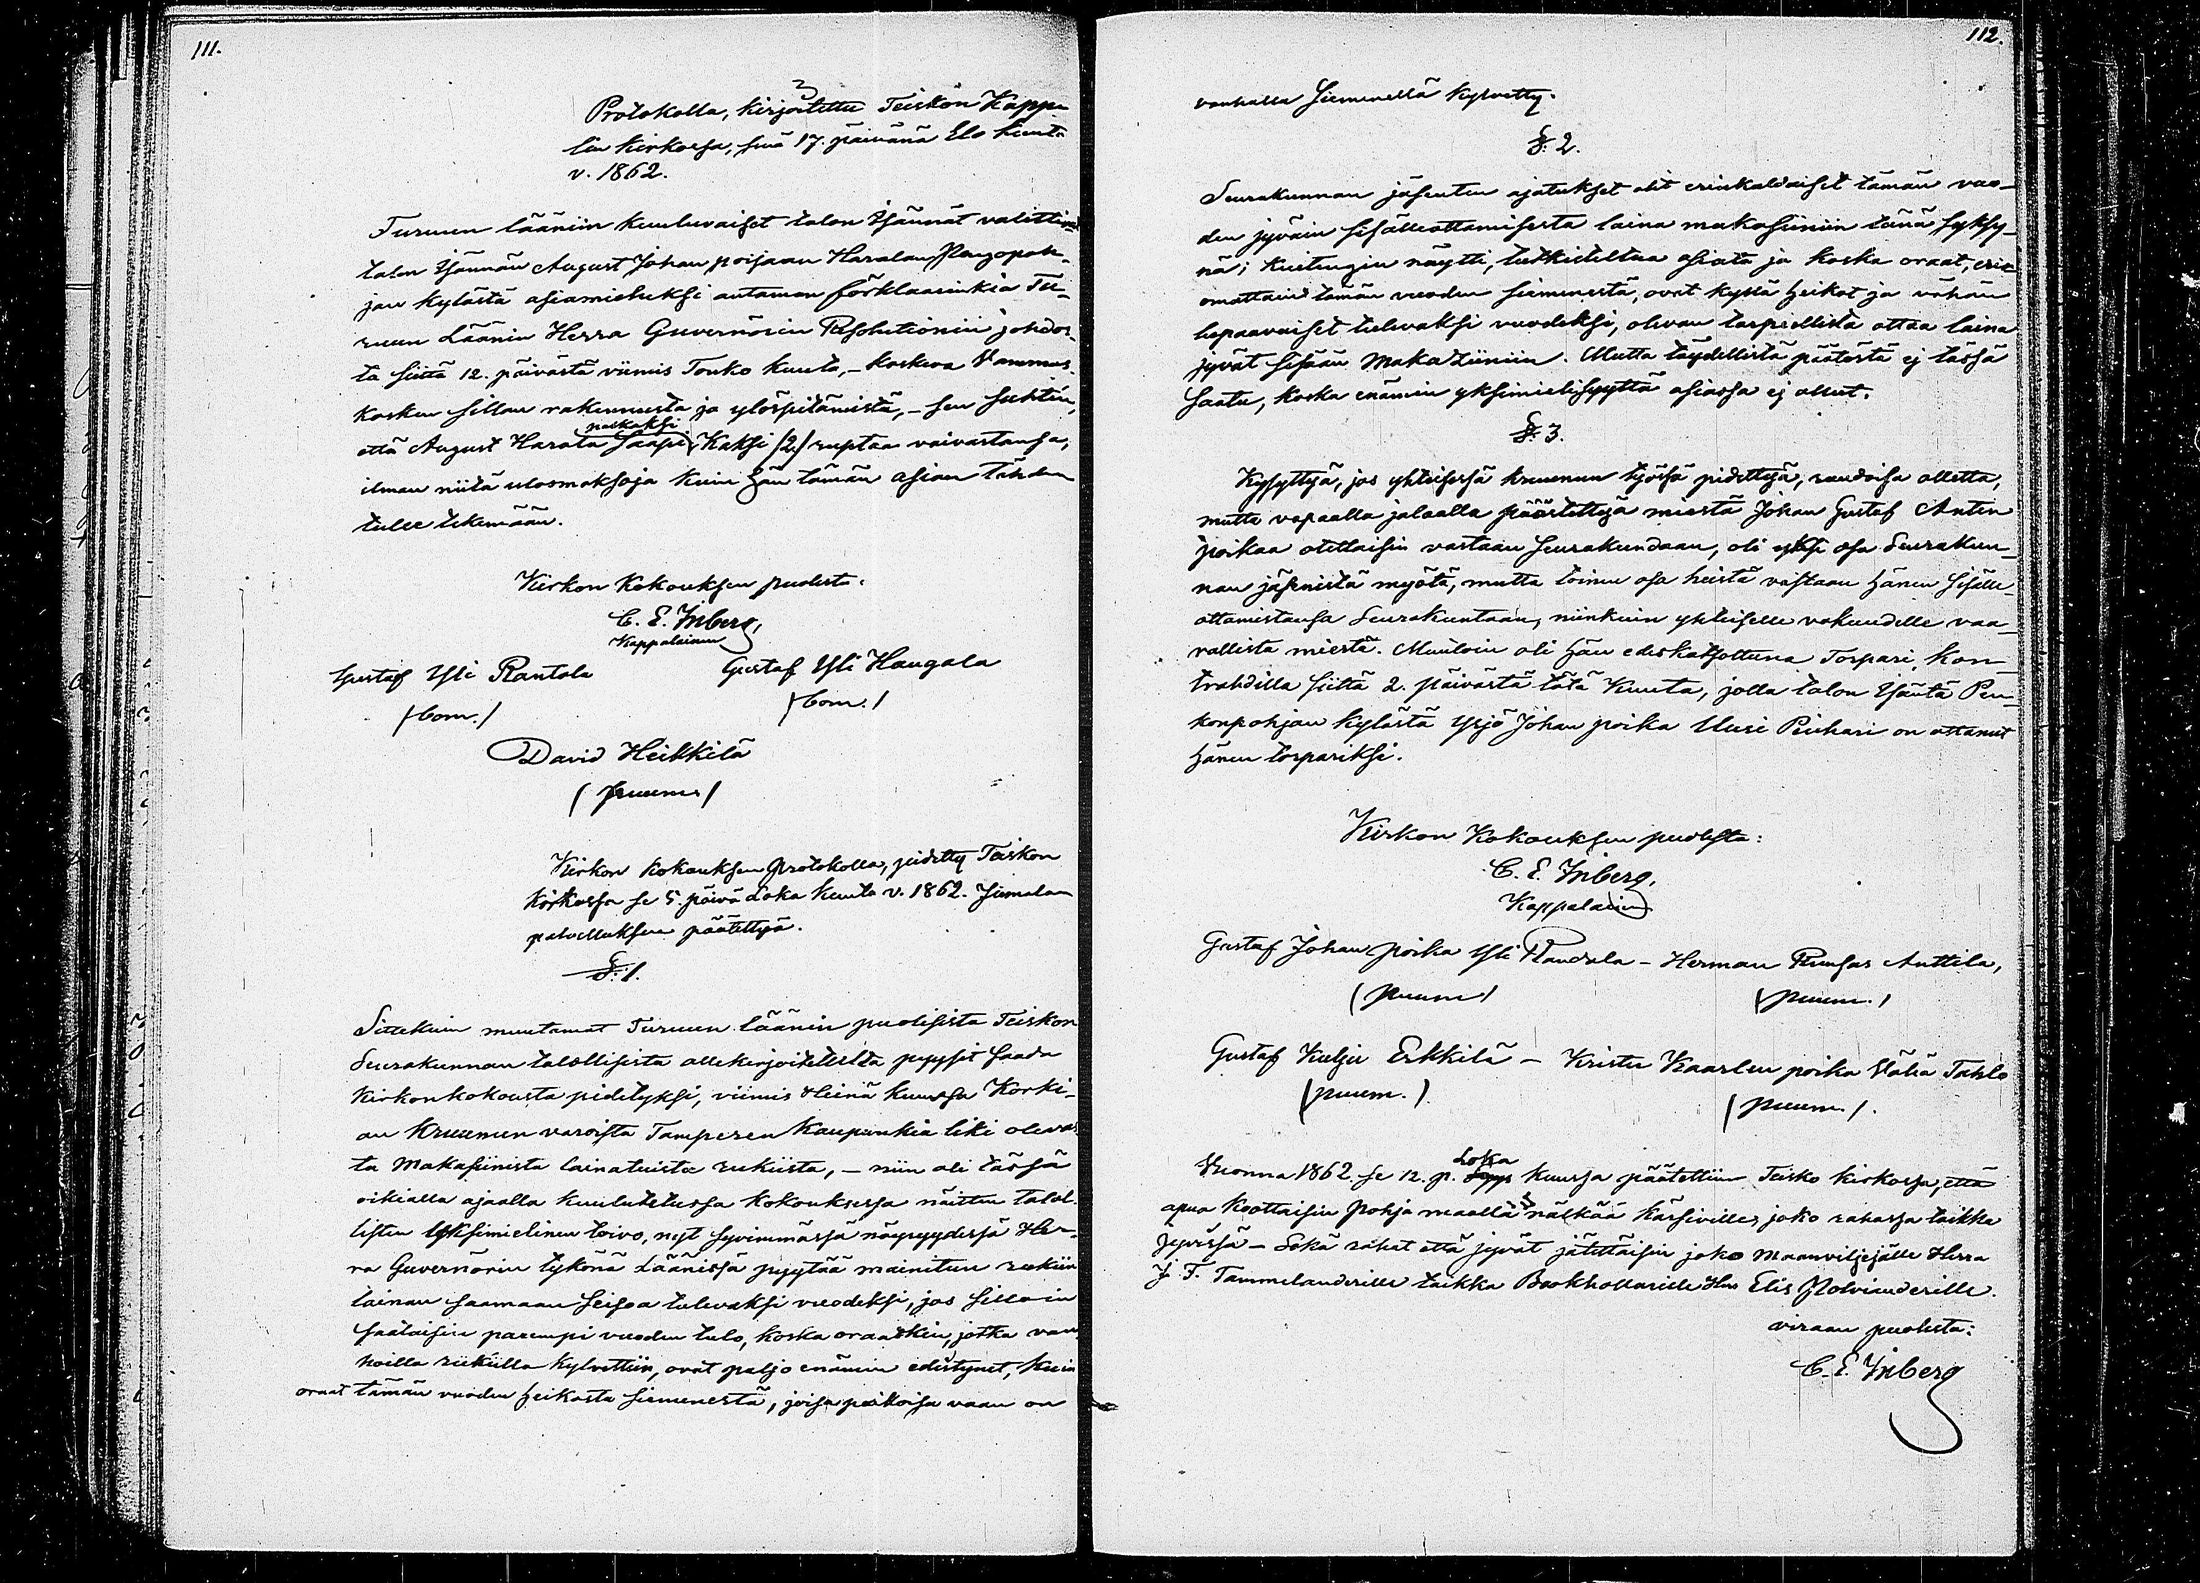 111.
Protokolla, kirjoitettu Teiskon Kappe
lin kirkossa, sinä 17. päivänä Elo kuuta
v. 1862.
Turuun lääniin kuuluvaiset talon Isännät valittivat
talon Isännän August Johan poijaan Haralan Pengonpoh-
jan kylästä asiamieheksi antaman förklaarinkia Tu-
ruun Läänin Herra Guvernörin Resolutionin johdos-
ta siittä 12. päivästä viimis Touko kuuta, – koskeva Vammas-
kosken sillan rakennusta ja ylöspitämistä, – sen suhtén,
että August Harala saapi palkaksi Kaksi /2/ ruplaa vaivastansa,
ilman niitä ulosmaksoja kuin hän tämän asian tähden
tulee tekemään.
Kirkon Kokouksen puolesta:
C. E. Inberg,
Kappalainen
Gustaf Yli Rantala Gustaf Yli Haugala
/bom./ /bom./
David Heikkilä
/puumr/
Kirkon kokouksen Protokolla, pidetty Teiskon
kirkossa se 5. päivä Loka kuuta v. 1862. Jumalan
palvelluksen päätettyä.
§. 1.
Sittekuin muutamat Turuun läänin puolisista Teiskon
Seurakunnan talollisista allekirjoitetulta pyysit saada
Kirkonkokousta pidetyksi, viimis Heinä kuussa Korki-
an Kruunun varoista Tamperen Kaupunkia liki olevas-
ta Makasiinista lainatuista rukiista, – niin oli tässä
oikialla ajaalla kuulutetussa kokouksessa näitten talol-
listen yksimielinen toivo, nyt syvimmässä nöyryydessä Her-
ra Guvernörin tykönä Läänissä pyytää mainitun rukiin
lainan saamaan seisoa tulevaksi vuodeksi, jos silloin
saataisiin parempi vuoden tulo, koska oraatkin, jotka van-
hoilla rukiilla kylvettiin, ovat paljo enämin edistynet, kuin
oraat tämän vuoden heikosta siemenestä, joisa paikoisa vaan on
112.
vanhalla Siemenellä kylvetty.
§. 2.
Seurakunnan jäsenten ajatukset olit erinkaldaiset tämän vuo-
den jyväin sisälleottamisesta laina makasiiniin tänä syksy-
nä; kuitengin näytti, tutkisteltua asiata ja koska oraat, erin
omattain tämän vuoden siemenestä, ovat kyllä heikot ja vähän
lupaavaiset tulevaksi vuodeksi, olevan tarpeellista ottaa laina
jyvät sisään Makaziiniin. Mutta täydellistä päätöstä ej tässä
saatu, koska enämin yksimielisyyttä asiassa ej ollut.
§. 3.
Kysyttyä, jos yhteisessä kruunun työssä pidettyä, raudoisa olletta,
mutta vapaalla jalaalla päästettyä miestä Johan Gustaf Antin
poikaa otettaisiin vastaan Seurakundaan, oli yksi osa Seurakun-
nan jäsenistä myötä, mutta toinen osa heistä vastaan hänen sisälle-
ottamistansa Seurakuntaan, niinkuin yhteiselle vakuudelle vaa-
rallista miestä. Muutoin oli hän edeskatsottuna Torpari, kon-
trahdilla siittä 2. päivästä tätä Kuuta, jolla talon Isäntä Pen-
konpohjan kylästä Yrjö Johan poika Uusi Pirhari on ottanut
hänen torpariksi.
Kirkon Kokouksen puolesta:
C. E. Inberg,
Kappalainen
Gustaf Johan poika Yli Randala – Herman Runsas Anttila,
(puum) (puum.)
Gustaf Kulju Erkkilä – Kristu Kaarlen poika Vähä Tahlo
(puum.) (puum.).
Vuonna 1862 se 12. p. Loka kuussa päätettiin Teisko kirkossa, että
apua koottaisiin Pohja maalla nälkää kärsiville, joko rahassa taikka
jyvissä – Sekä rahat että jyvät jätettäisiin joko Maanviljejälle Herra
J. F. Tammelanderille taikka Bookhollarille Herr Elis Polvianderille.
viraan puolesta:
C. E. Inberg